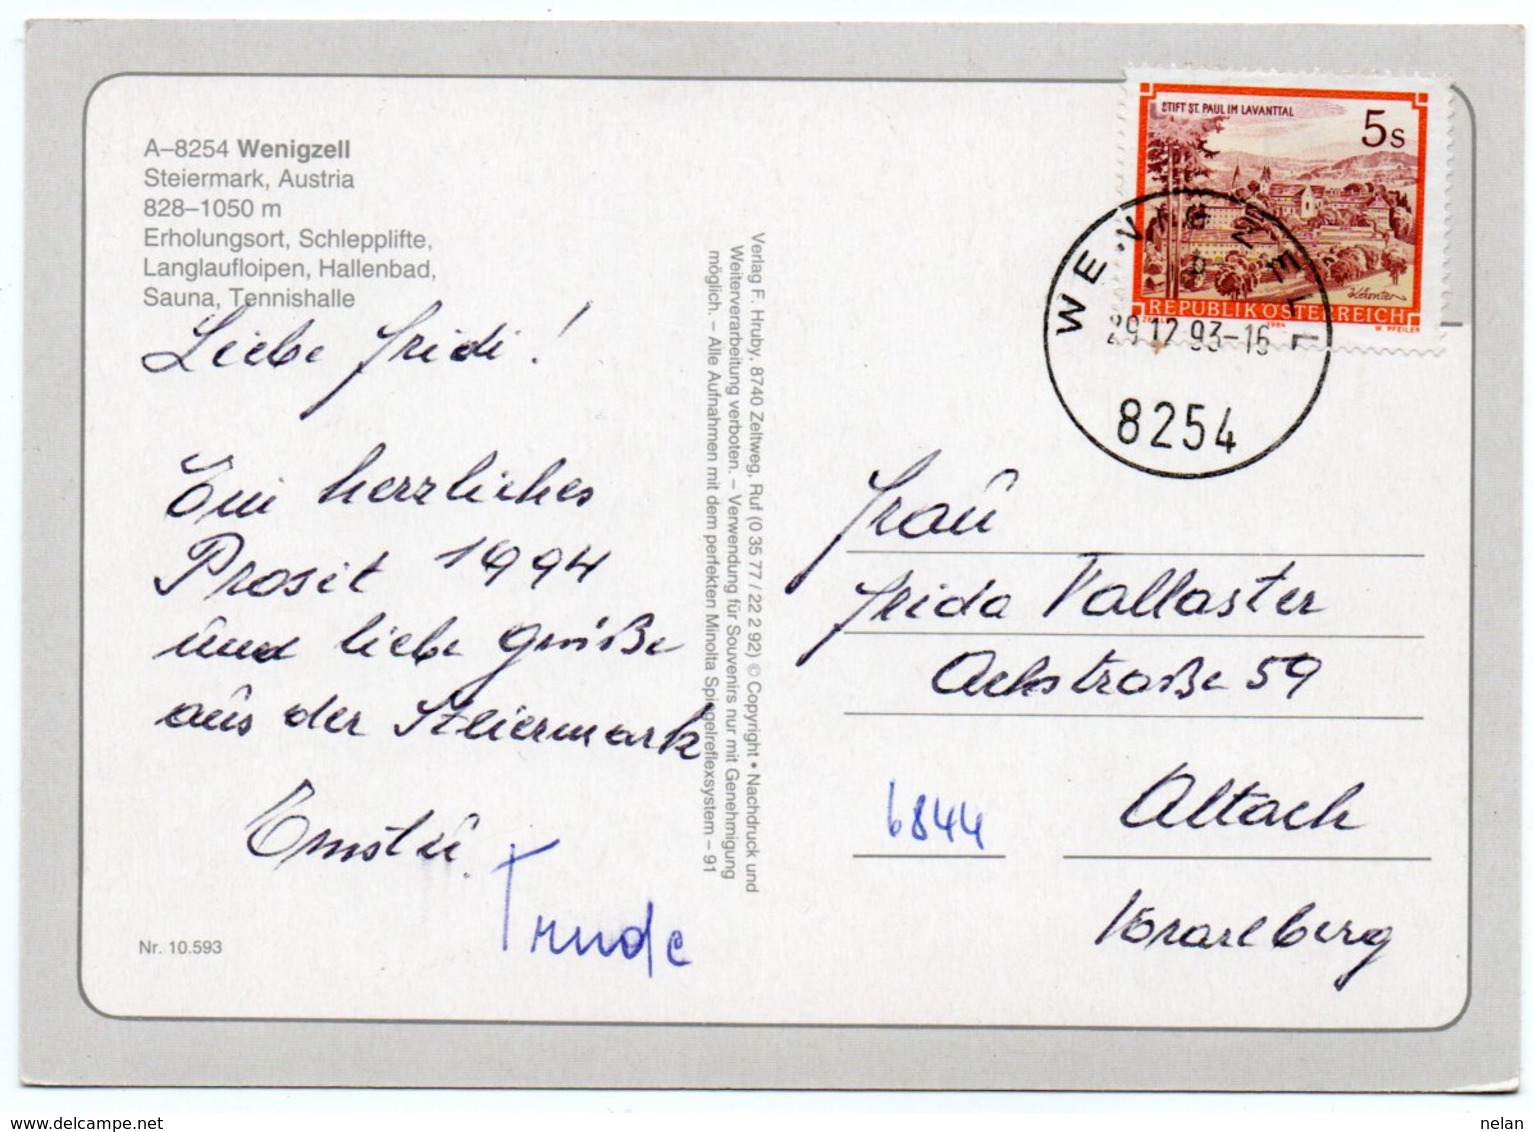 A–8254 Wenigzell
Steiermark, Austria
828–1050 m
Erholungsort, Schlepplifte,
Langlaufloipen, Hallenbad,
Sauna, Tennishalle
Liebe Fridi!
Ein herzliches
Prosit 1994
und liebe Grüße
aus der Steiermark
Trude
Nr. 10.593
Verlag F. Hruby, 8740 Zeltweg, Ruf (0 35 77 / 22 2 92) © Copyright • Nachdruck und
Weiterverarbeitung verboten. – Verwendung für Souvenirs nur mit Genehmigung
möglich. – Alle Aufnahmen mit dem perfekten Minolta Spiegelreflexsystem – 91
STIFT ST. PAUL IM LAVANTTAL
5 S
REPUBLIK ÖSTERREICH
W. PFEILER
WENIGZELL
29.12.93-16
8254
Frau
Frida Vallaster
Achstraße 59
6844
Altach
Vorarlberg
www.delcampe.net
nelan